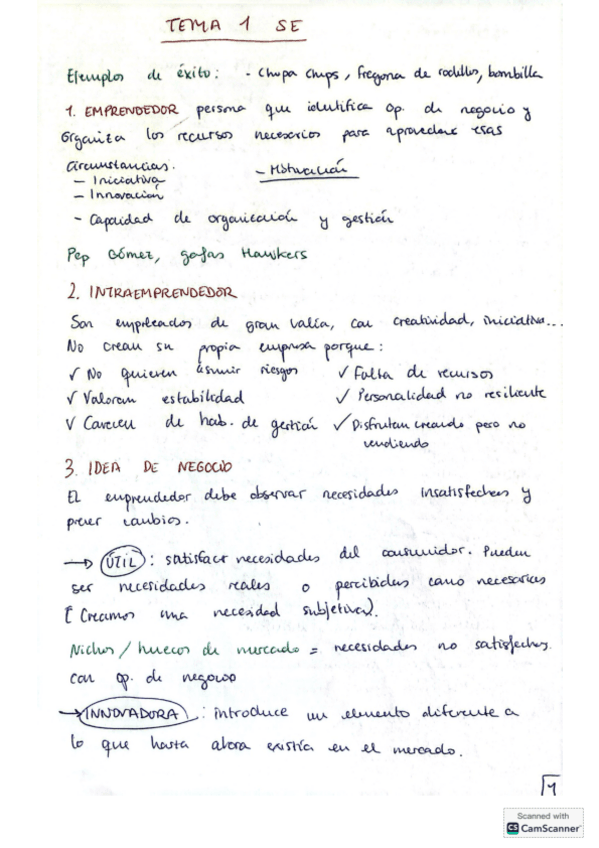 TEMA 1 SE
Ejemplos de éxito: - Chupa Chups, fregona de rodillos, bombilla
1. EMPRENDEDOR persona que identifica op. de negocio y
organiza los recursos necesarios para aprovechar esas
circunstancias.
- Motivación
- Iniciativa
- Innovación
- Capacidad de organización y gestión
Pep Gómez, gafas Hawkers
2. INTRAEMPRENDEDOR
Son empleados de gran valía, con creatividad, iniciativa...
No crean su propia empresa porque:
✓ No quieren asumir riesgos ✓ Falta de recursos
✓ Valoran estabilidad ✓ Personalidad no resiliente
✓ Carecen de hab. de gestión ✓ Disfrutan creando pero no
vendiendo
3. IDEA DE NEGOCIO
El emprendedor debe observar necesidades insatisfechas y
prever cambios.
→ ÚTIL: satisfacer necesidades del consumidor. Pueden
ser necesidades reales o percibidas como necesarias
(Creamos una necesidad subjetiva).
Nichos / huecos de mercado = necesidades no satisfechas
con op. de negocio
→ INNOVADORA: introduce un elemento diferente a
lo que hasta ahora existía en el mercado.
1
Scanned with
CS CamScanner